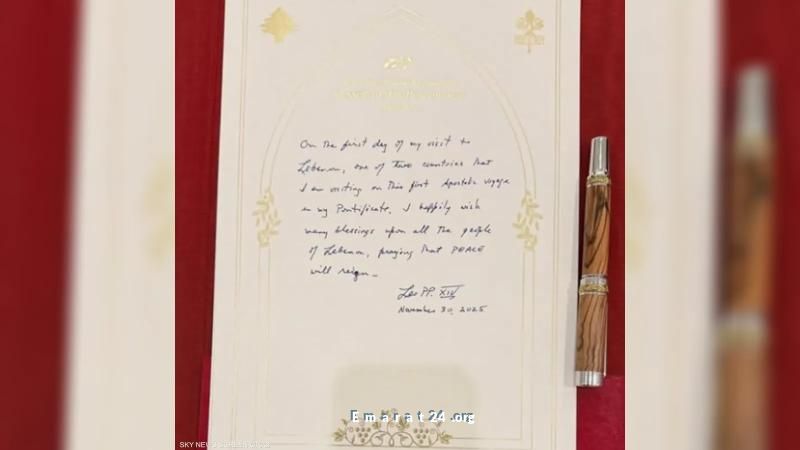 On the first day of my visit to
Lebanon, one of two countries that
I am visiting on this first Apostolic Voyage
in my Pontificate, I happily wish
many blessings upon all the people
of Lebanon, praying that PEACE
will reign.
Leo PP. XIV
November 30, 2025
Emarat24.org
SKY NEWS